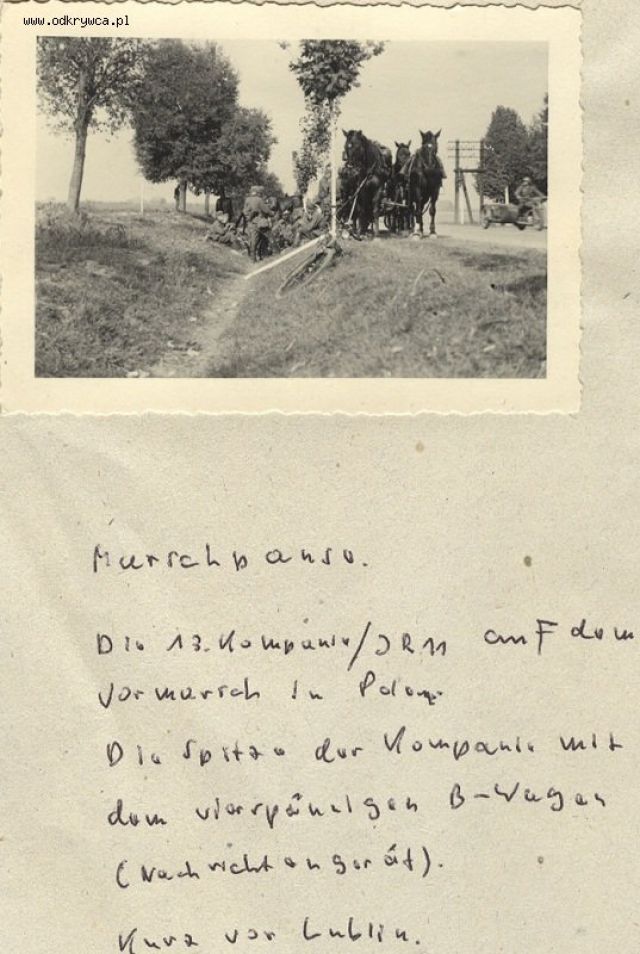 www.odkrywca.pl
Marschpause.
Die 13. Kompanie/JR11 auf dem
Vormarsch in Polen.
Die Spitze der Kompanie mit
dem vierspännigen B-Wagen
(Nachrichtengerät).
Kurz vor Lublin.